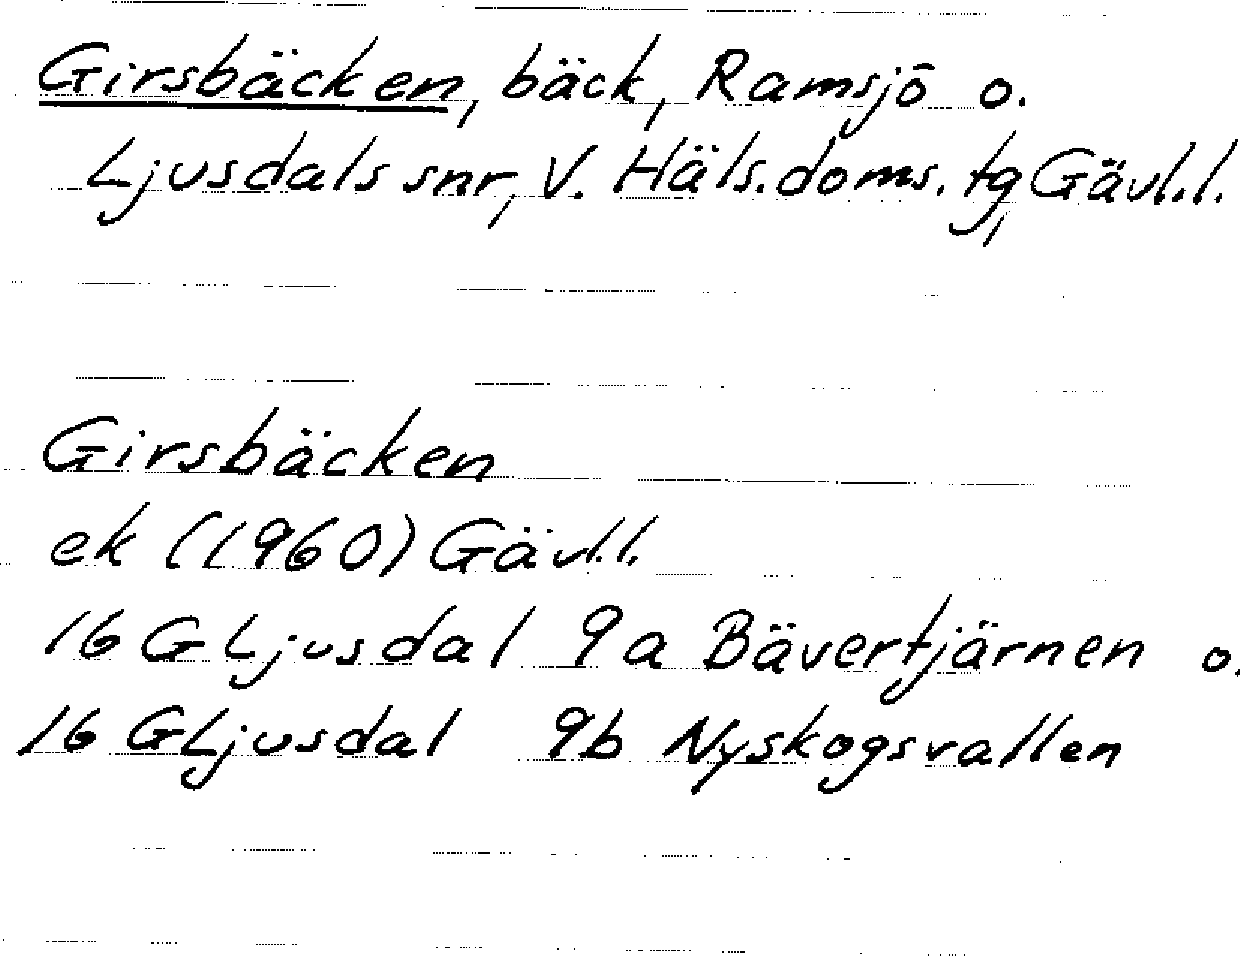 Girsbäcken, bäck, Ramsjö o.
Ljusdals snr, V. Häls. doms. tg, Gävl.l.
Girsbäcken
ek (1960) Gävl.l.
16 G Ljusdal 9a Bävertjärnen o.
16 G Ljusdal 9b Nyskogsvallen